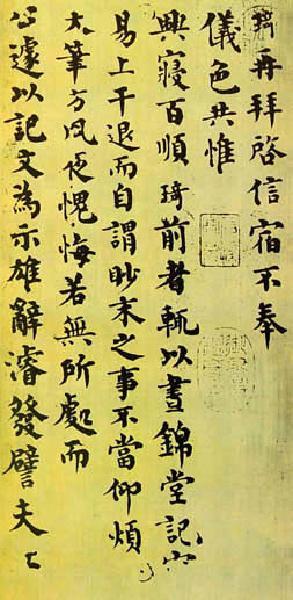 琦再拜啓信宿不奉
儀色共惟
興寢百順琦前者輒以晝錦堂記容
易上干退而自謂眇末之事不當仰煩
大筆方夙夜愧悔若無所處而
公遽以記文為示雄辭濬發譬夫